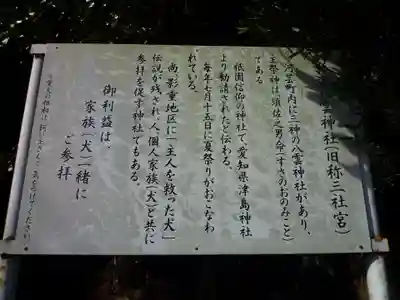 雲神社(旧称三社宮)
浮雲町内に三神の八雲神社があり、
主祭神は須佐之男命(すさのおのみこと)
である
祇園信仰の神社で、愛知県津島神社
より勧請されたと伝わる。
毎年七月十五日に夏祭りがおこなわ
れている。
尚、影重地区に「主人を救った犬」
伝説が残され、人、個人家族(犬)と共に
参拝を促す神社でもある。
御利益は、
家族(犬)一緒に
ご参拝